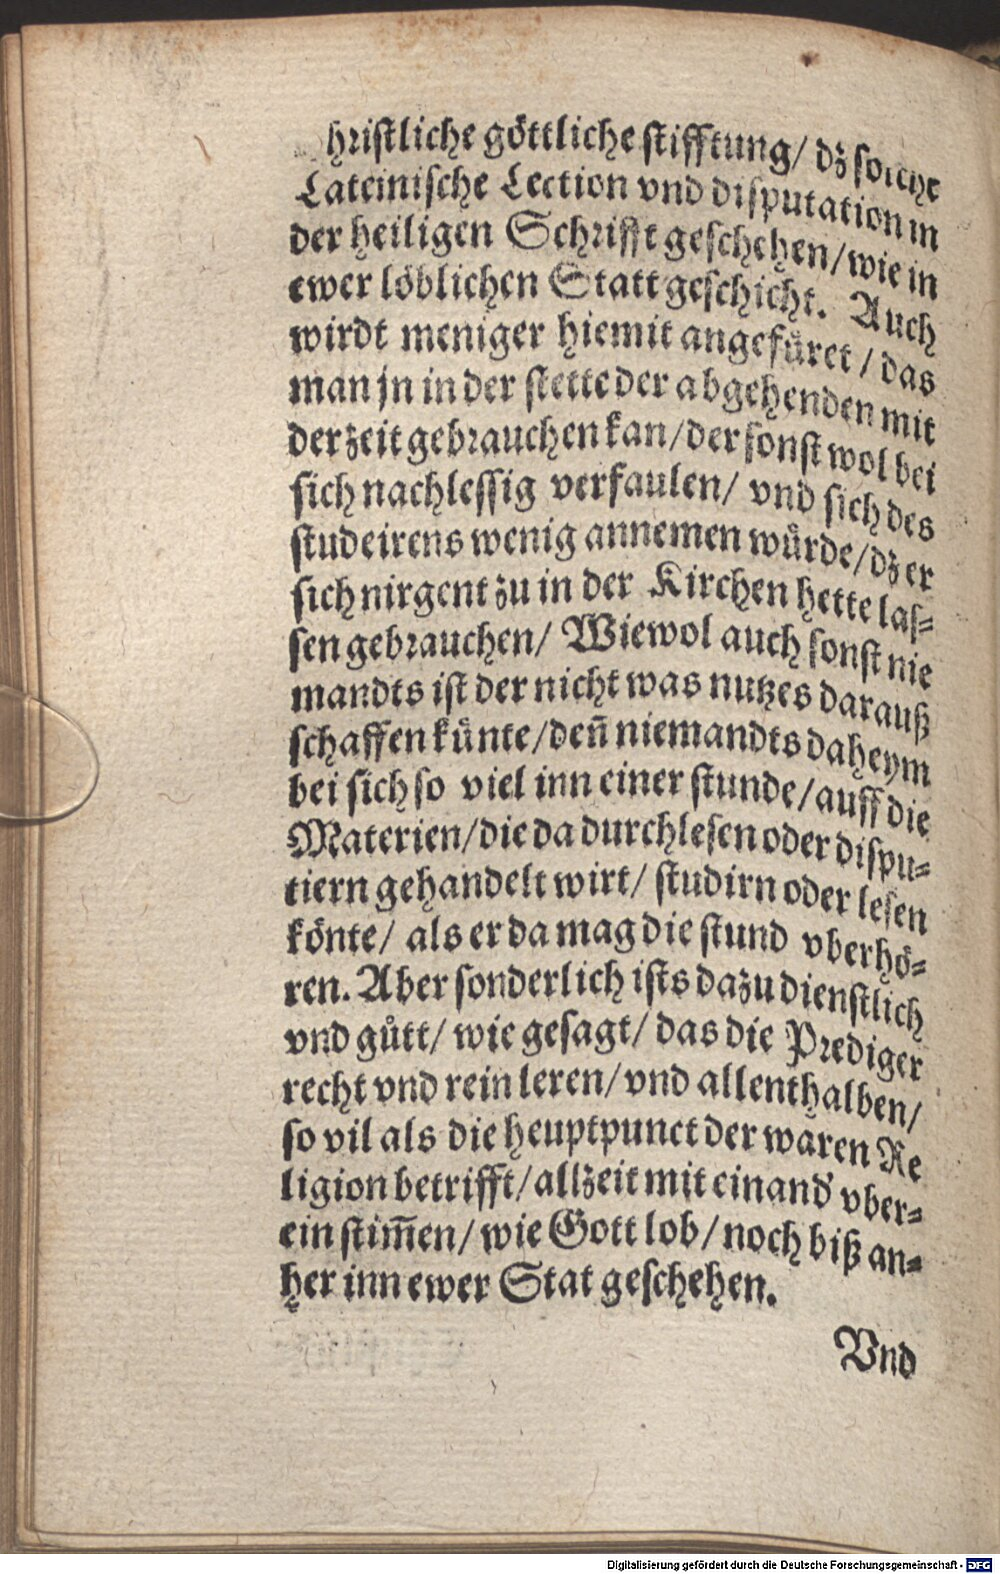 hristliche göttliche stifftung/ dz solche
Lateinische Lection vnd disputation in
der heiligen Schrifft geschehen/ wie in
ewer löblichen Statt geschicht. Auch
wirdt meniger hiemit angefüret / das
man jn in der stette der abgehenden mit
der zeit gebrauchen kan/ der sonst wol bei
sich nachlessig verfaulen/ vnd sich des
studeirens wenig annemen würde/ dz er
sich nirgent zu in der Kirchen hette las=
sen gebrauchen/ Wiewol auch sonst nie
mandts ist der nicht was nutzes darauß
schaffen künte/ deñ niemandts daheym
bei sich so viel inn einer stunde/ auff die
Materien/ die da durch lesen oder dispu=
tiern gehandelt wirt/ studirn oder lesen
könte/ als er da mag die stund vberhö=
ren. Aber sonderlich ists dazu dienstlich
vnd gůtt/ wie gesagt/ das die Prediger
recht vnd rein leren/ vnd allenthalben/
so vil als die heuptpunct der waren Re
ligion betrifft/ allzeit mit einand' vber=
ein stim̃en/ wie Gott lob/ noch biß an=
her inn ewer Stat geschehen.
Vnd
Digitalisierung gefördert durch die Deutsche Forschungsgemeinschaft - DFG